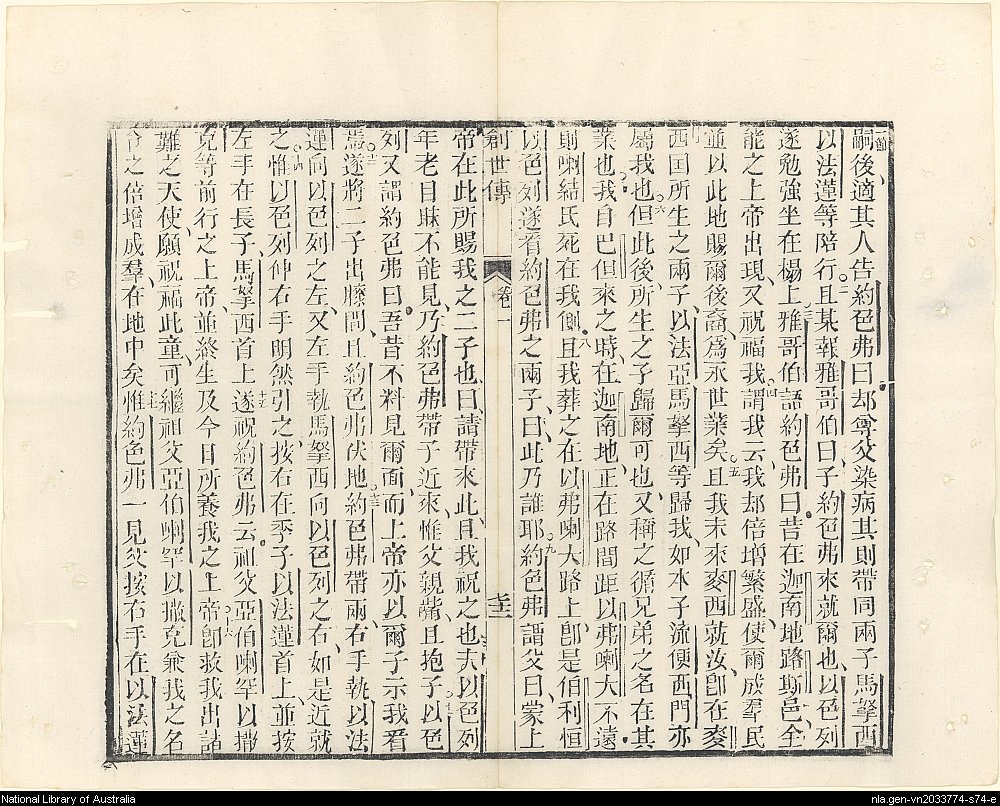 一節
嗣後適其人告約色弗曰却尊父染病其則帶同兩子馬拏西
以法蓮等陪行且某報雅哥伯曰子約色弗來就爾也以色列
遂勉強坐在榻上雅哥伯語約色弗曰昔在迦南地路斯邑全
能之上帝出現又祝福我謂我云我却倍增繁盛使爾成羣民
並以此地賜爾後裔為永世業矣且我未來麥西就汝卽在麥
西国所生之兩子以法亞馬拏西等歸我如本子流便西門亦
屬我也但此後所生之子歸爾可也又稱之循兄弟之名在其
業也我自巴但來之時在迦南地正在路間距以弗喇大不遠
則喇結氏死在我側且我葬之在以弗喇大路上卽是伯利恒
以色列遂看約色弗之兩子曰此乃誰耶約色弗謂父曰蒙上
創世傳 卷一
帝在此所賜我之二子也曰請帶來此且我祝之也夫以色列
年老目眛不能見乃約色弗帶子近來惟父親嘴且抱子以色
列又謂約色弗曰吾昔不料見爾面而上帝亦以爾子示我看
焉遂將二子出膝間且約色弗伏地約色弗帶兩右手執以法
蓮向以色列之左又左手執馬拏西向以色列之右如是近就
之惟以色列伸右手明然引之按右在季子以法蓮首上並按
左手在長子馬拏西首上遂祝約色弗云祖父亞伯喇罕以撒
克等前行之上帝並終生及今日所養我之上帝卽救我出諸
難之天使願祝福此童可繼祖父亞伯喇罕以撒克兼我之名
之倍增成羣在地中矣惟約色弗一見父按右手在以法蓮